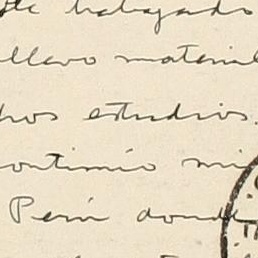 trabajado
llevo material
estudios.
continúo mi
Perú donde